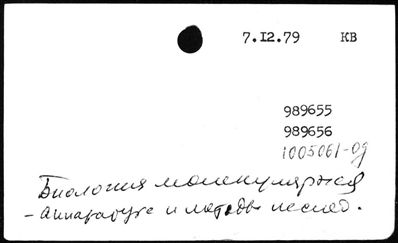 7.I2.79 КВ
989655
989656
1005061-09
Биология молекулярная
- аппаратура и методы исслед.